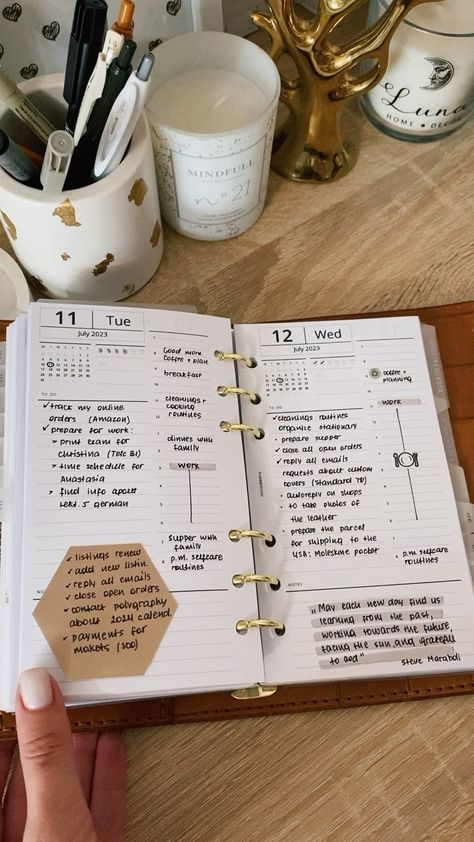 MINDFULL
nº 21
Luna
HOME DECOR
11 Tue
July 2023
TO DO
✓ track my online
orders (Amazon)
✓ prepare for work:
▷ print exam for
Christina (Tele B1)
▷ time schedule for
Anastasia
▷ find info about
lekt. 5 german
✓ listings renew
✓ add new listin.
✓ reply all emails
✓ close open orders
✓ contact polygraphy
about 2024 calend.
✓ payments for
makets (300)
Good more.
coffee + plan.
breakfast
cleanings +
cooking
routines
dinner with
family
WORK
supper with
family
p.m. selfcare
routines
12 Wed
July 2023
TO DO
✓ cleanings routines
• organize stationary
• prepare supper
✓ close all open orders
✓ reply all emails
requests about custom
covers (standard TB)
• autoreply on shops
• to take photos of
the leather
• prepare the parcel
for shipping to the
USA: Moleskine pocket
coffee +
planning
WORK
p.m. selfcare
routines
NOTES
"May each new day find us
learning from the past,
working towards the future,
facing the sun and grateful
to God"
Steve Maraboli